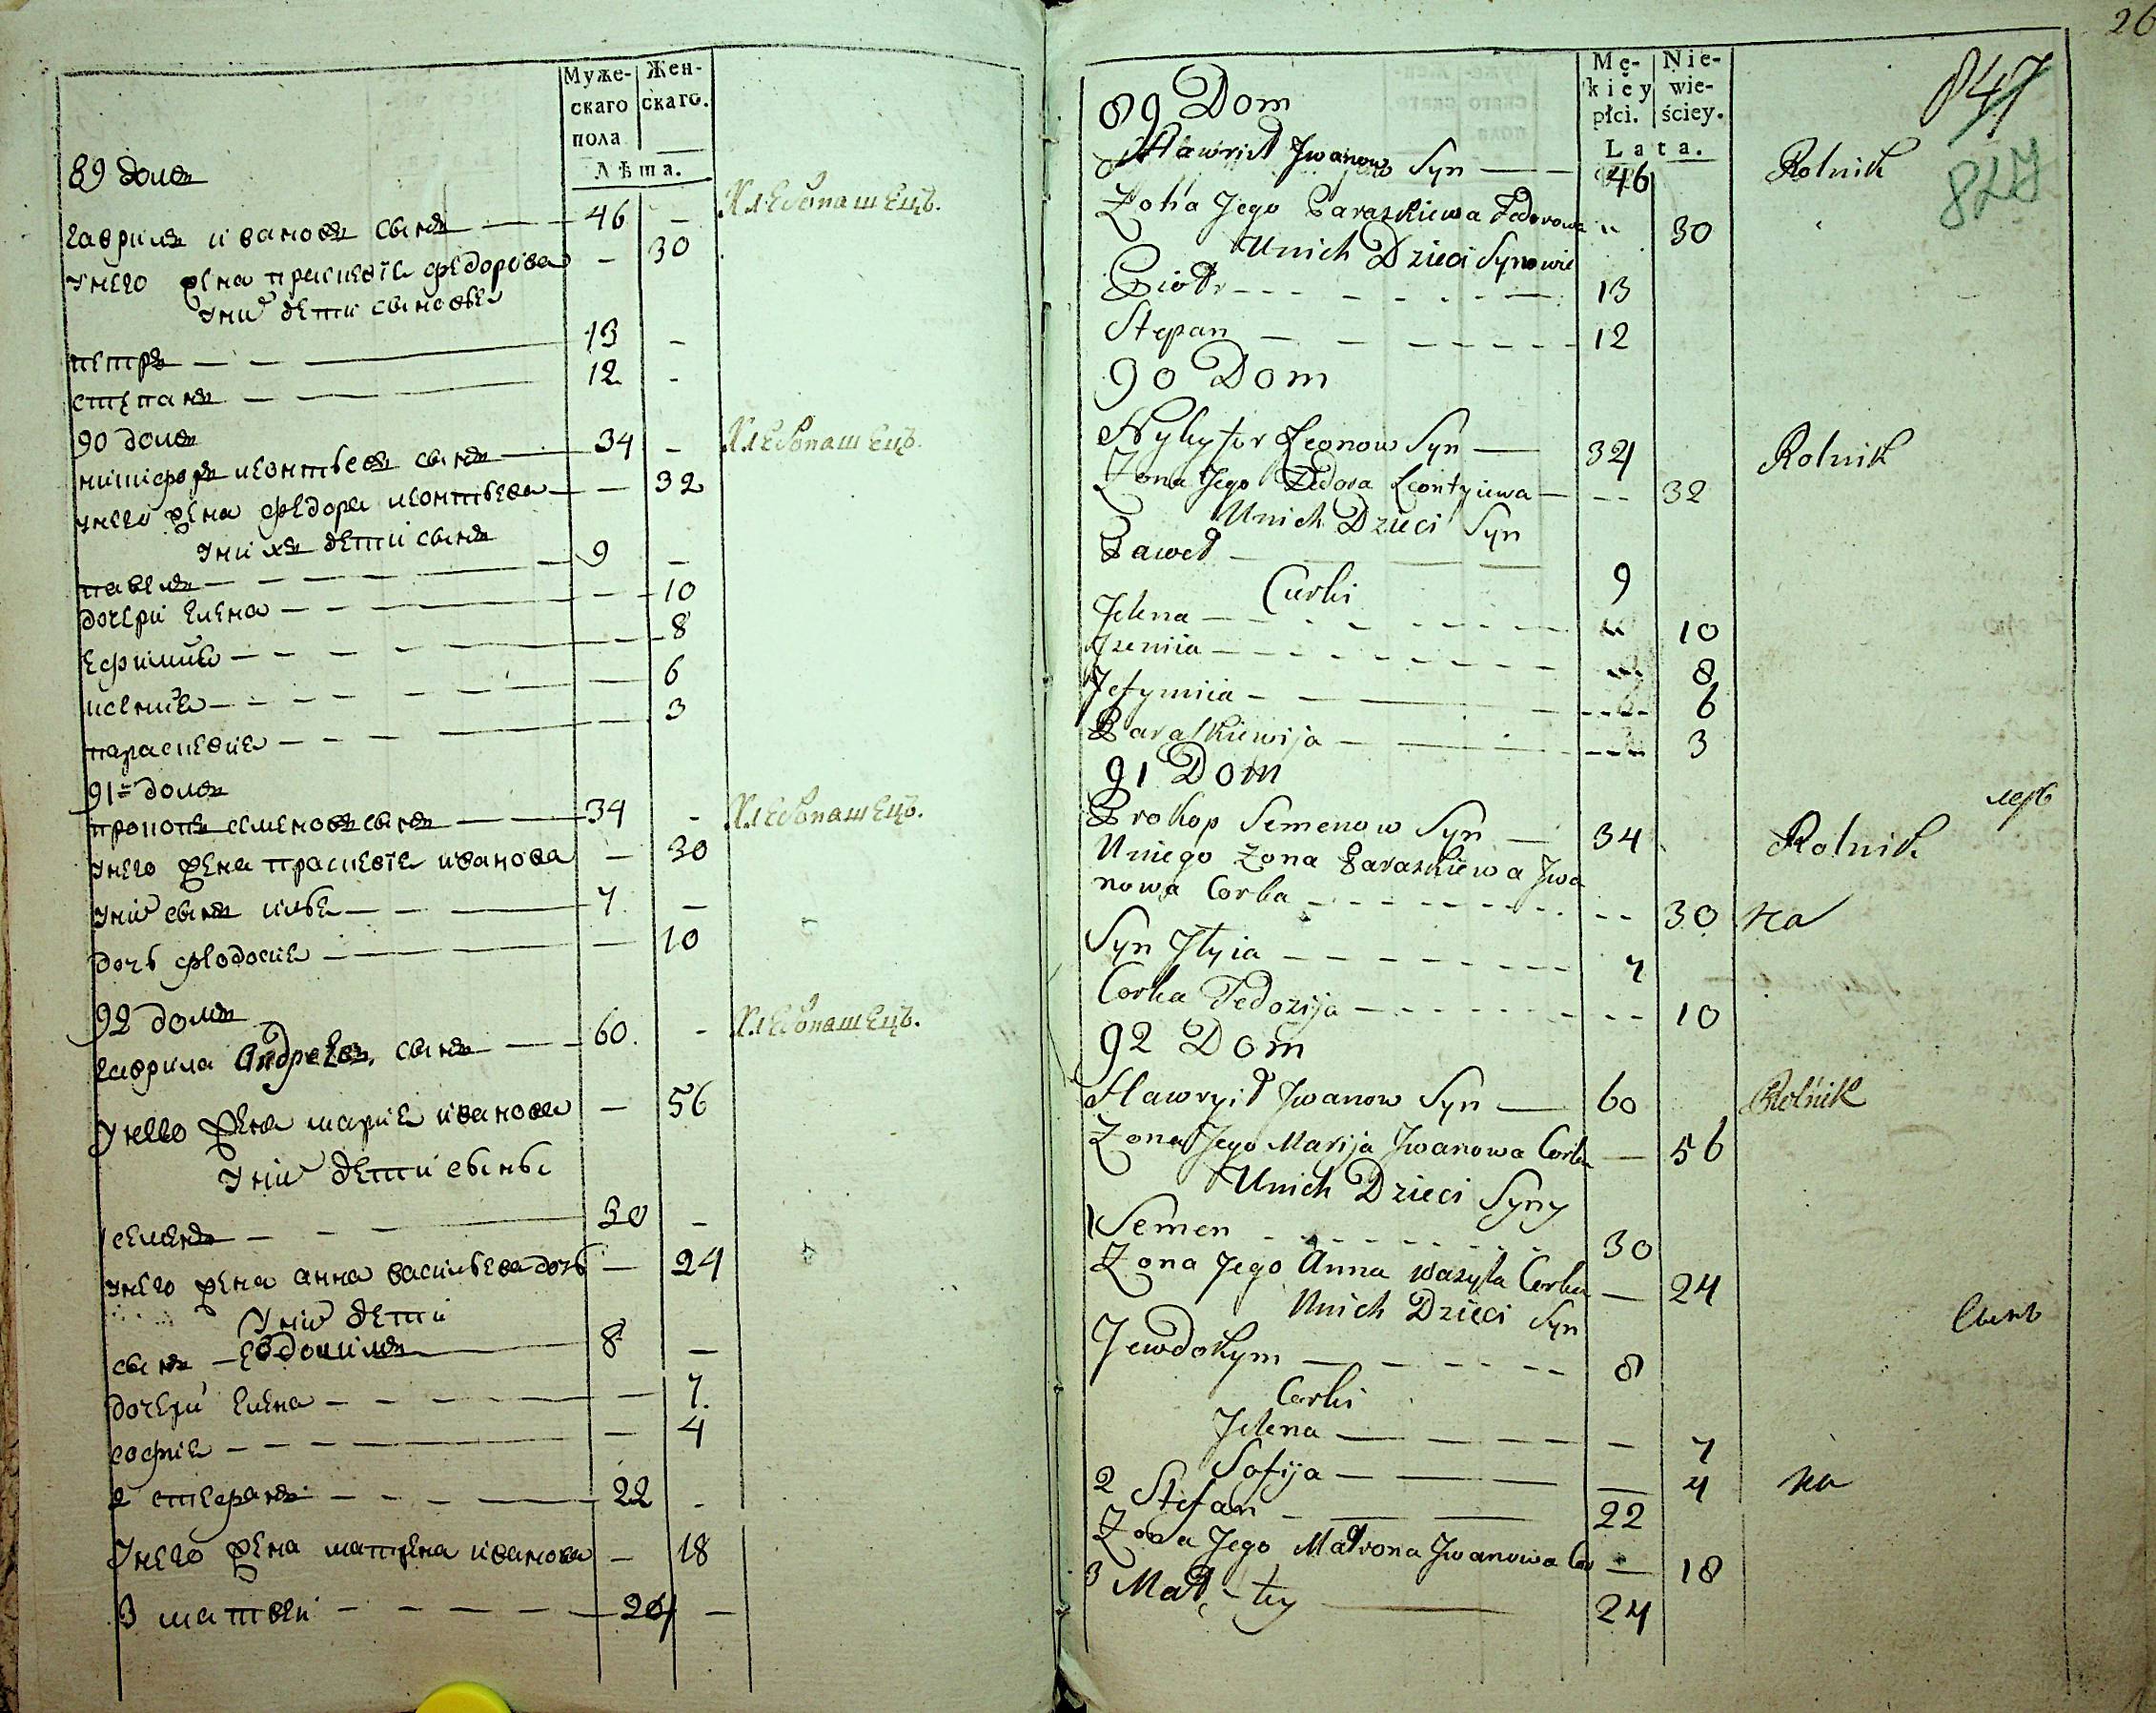 Муже-
скаго
пола
Жен-
скаго.
Лѣта.
89 домъ
гаврила ивановъ сынъ 46 - Хлебопашецъ.
унего жена праскевiя федорова - 30
Уних дети сыновья
петръ 13 -
степанъ 12 -
90 домъ
никифоръ леонтьевъ сынъ 34 - Хлебопашецъ.
унего жена федора леонтьева - 32
унихъ дети сынъ
павелъ 9 -
дочери елена - 10
ефимия - 8
ксения - 6
параскевия - 3
91 домъ
прокопъ семеновъ сынъ 34 - Хлебопашецъ.
унего жена праскевiя иванова - 30
уних сынъ илья 7 -
дочь феодосия - 10
92 домъ
гаврила Андреевъ сынъ 60. - Хлебопашецъ.
Унего жена мария иванова - 56
Уних дети сыны
1 семенъ 30 -
унего жена анна васильева дочь - 24
Уних дети
сынъ евдокимъ 8 -
дочери елена - 7.
софия - 4
2 стефанъ 22 -
Унего жена матрена иванова - 18
3 матвей 24 -
26
Mę-
kiey
płci.
Nie-
wie-
ściey.
Lata.
847
827
89 Dom
Hawrił Jwanow Syn 46 Rolnik
Żona Jego Paraskiewa Fedorowa 30
Unich Dzieci Synowie
Piotr 13
Stepan 12
90 Dom
Nykyfor Leonow Syn 34 Rolnik
Żona Jego Fedora Leontyiewa 32
Unich Dzieci Syn
Paweł 9
Curki
Jelena 10
Xsemiia 8
Jefymiia 6
Paraskiewija 3
91 Dom
Prokop Semenow Syn 34 Rolnik
Uniego Żona Paraskiewa Jwa
nowa Corka 30 на
Syn Jłyia 7
Corka Fedozija 10
92 Dom
Hawryił Jwanow Syn 60 Rolnik
Żona Jego Marija Jwanowa Corka 56
Unich Dzieci Syny
1 Semen 30
Żona Jego Anna Wasyla Corka 24
Unich Dzieci Syn
Jewdokym 8
Corki
Jelena 7
Sofija 4 на
2 Stefan 22
Żona Jego Matrona Jwanowa Cor 18
3 Mat-ty 24